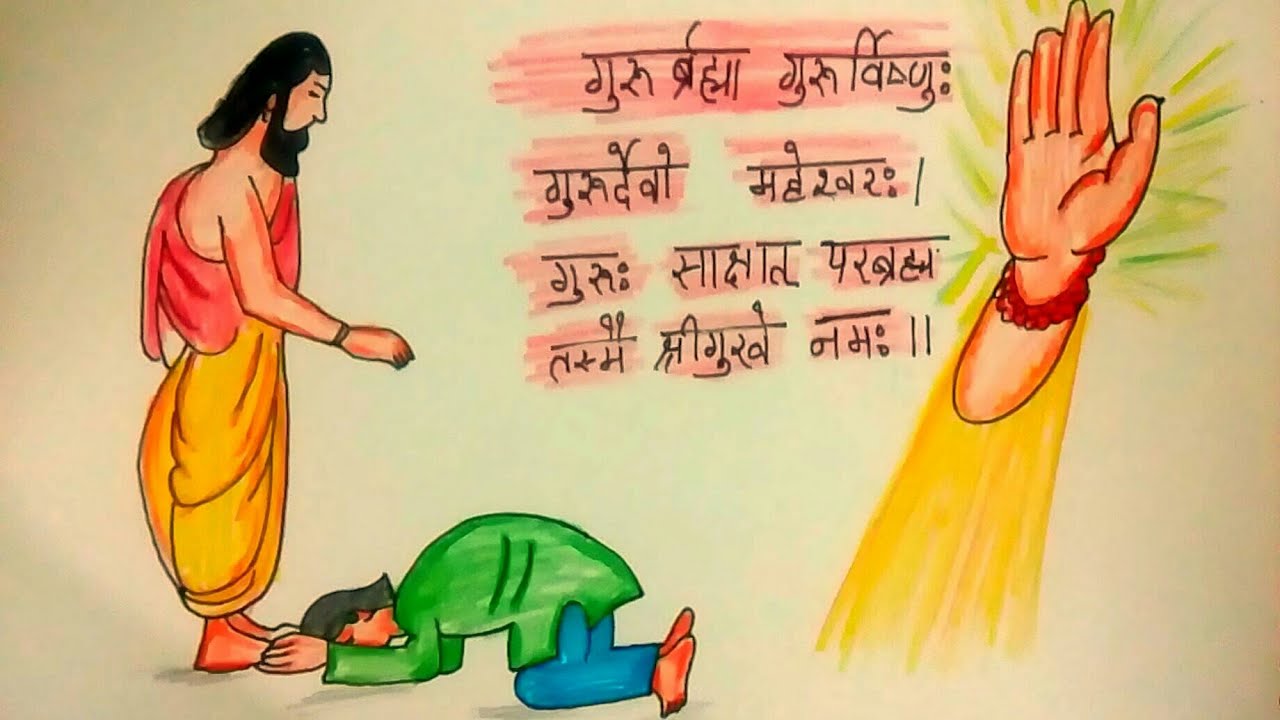 गुरुर्ब्रह्मा गुरुर्विष्णुः
गुरुर्देवो महेश्वरः।
गुरुः साक्षात् परब्रह्म
तस्मै श्रीगुरवे नमः॥